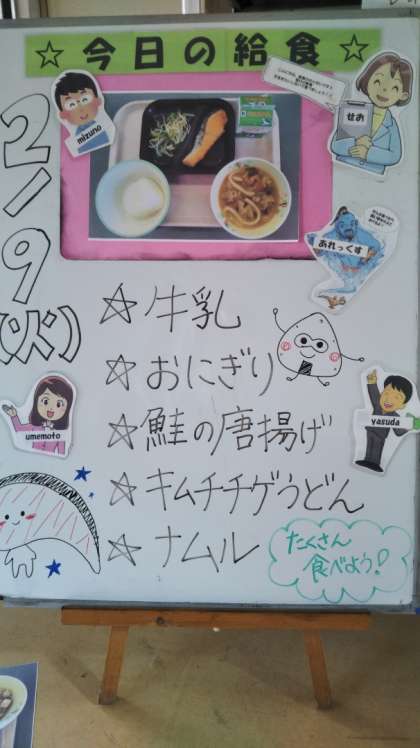 ☆今日の給食☆
mizuno
せお
あれっくす
2/9
(火)
☆牛乳
☆おにぎり
☆鮭の唐揚げ
☆キムチチゲうどん
☆ナムル
umemoto
yasuda
たくさん
食べよう!